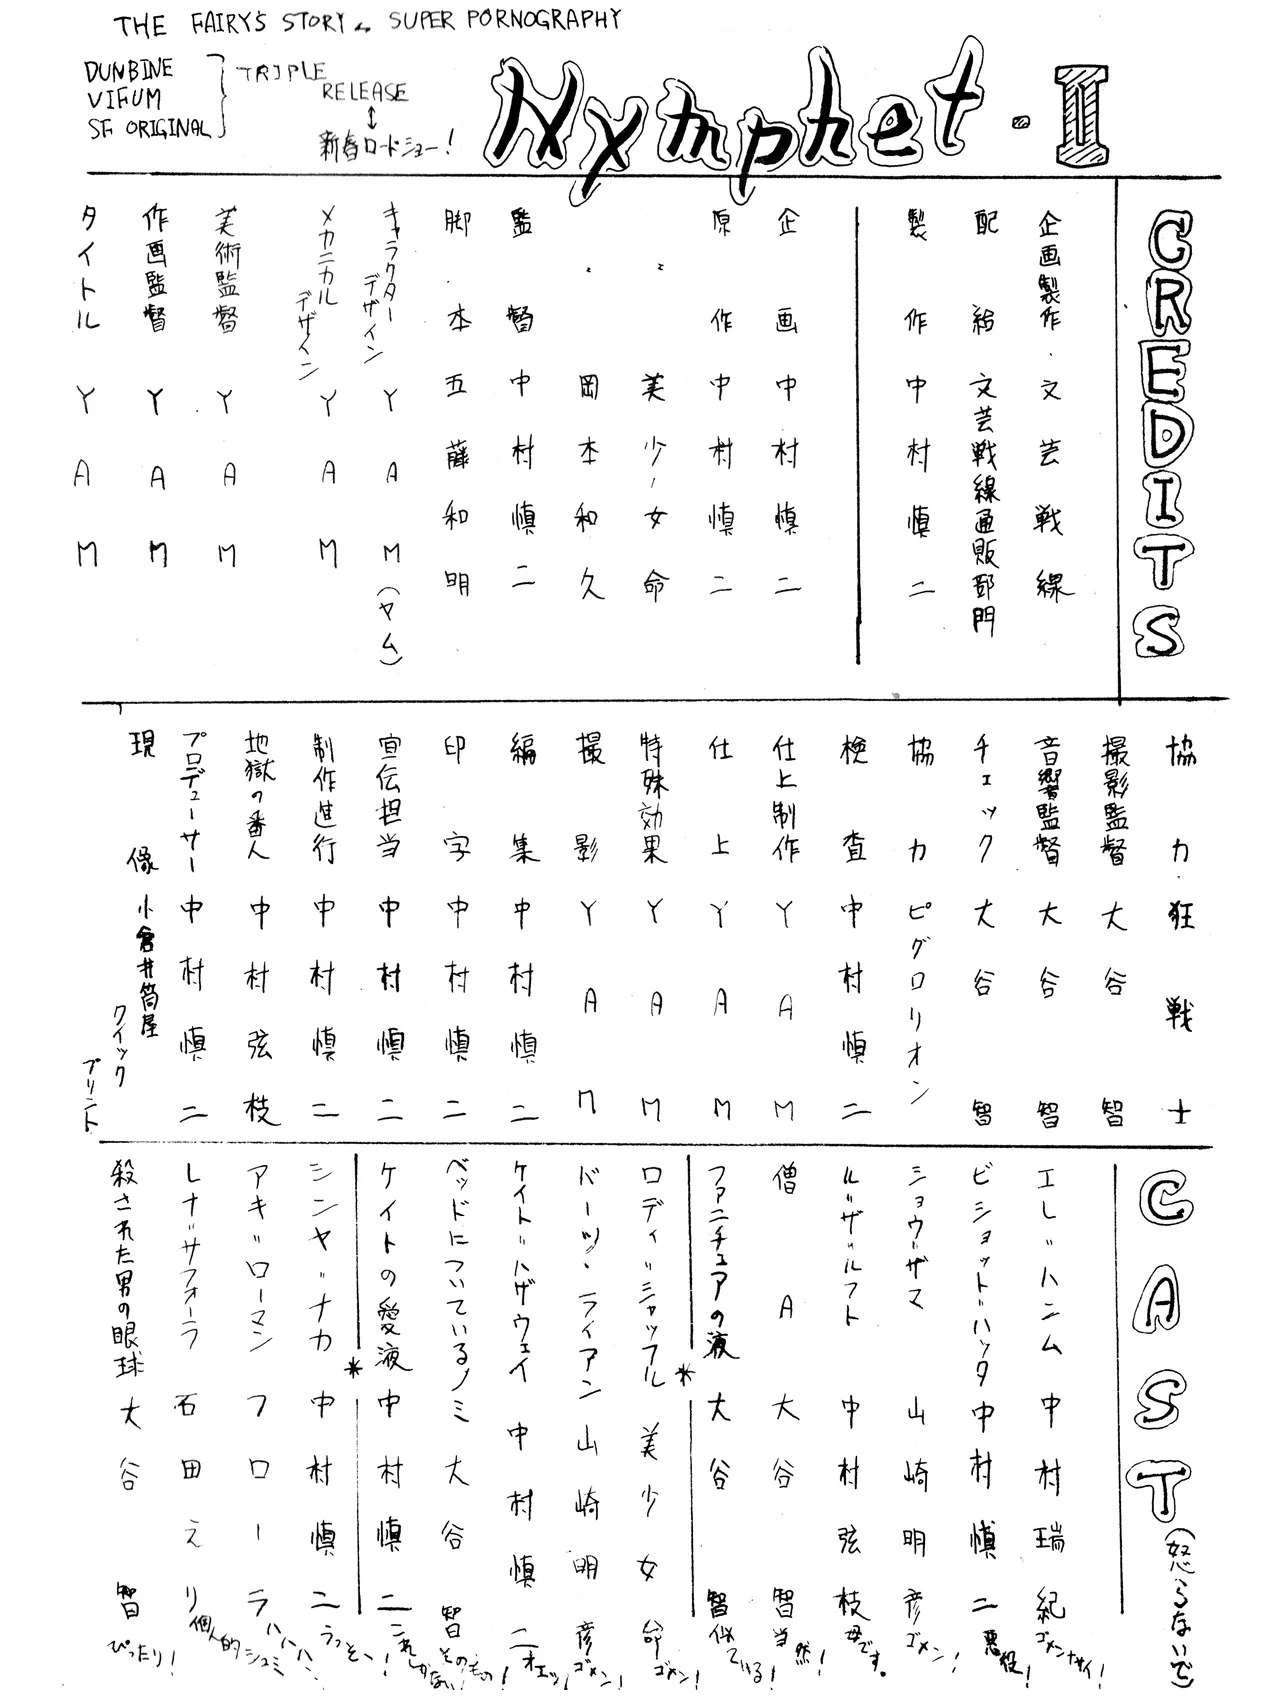 THE FAIRY'S STORY SUPER PORNOGRAPHY
DUNBINE
VIFUM
SF ORIGINAL
TRIPLE
RELEASE
↕
新春ロードショー!
Nymphet・II
CREDITS
企画製作・文芸戦線
配給 文芸戦線通販部門
製作 中村慎二
企画 中村慎二
原作 中村慎二
〃 美少女命
〃 岡本和久
監督 中村慎二
脚本 五藤和明
キャラクターデザイン YAM(ヤム)
メカニカルデザイン YAM
美術監督 YAM
作画監督 YAM
タイトル YAM
協力・狂戦士
撮影監督 大谷智
音響監督 大谷智
チェック 大谷智
協力 ピグロリオン
検査 中村慎二
仕上制作 YAM
仕上 YAM
特殊効果 YAM
撮影 YAM
編集 中村慎二
印字 中村慎二
宣伝担当 中村慎二
制作進行 中村慎二
地獄の番人 中村弦枝
プロデューサー 中村慎二
現像 小倉井筒屋クイックプリント
CAST(怒らないで)
エレ=ハンム 中村瑞紀 ゴメンナサイ!
ビショット=ハッタ 中村慎二 悪役!
ショウ=ザマ 山崎明彦 ゴメン!
ルーザ=ルフト 中村弦枝 母です。
僧A 大谷智 当然!
ファニチュアの液 大谷智 似てる!
*
ロディ=シャッフル 美少女命 ゴメン!
バーツ・ライアン 山崎明彦 ゴメン!
ケイト=ハザウェイ 中村慎二 オエッ!
ベッドについているノミ 大谷智 そのもの!
ケイトの愛液 中村慎二 これしかない!
*
シンヤ=ナカ 中村慎二 うっそー!
アキ=ローマン フローラ ハハハハ
レナ=サフォーラ 石田えり 個人的シュミ
殺された男の眼球 大谷智 ぴったり!